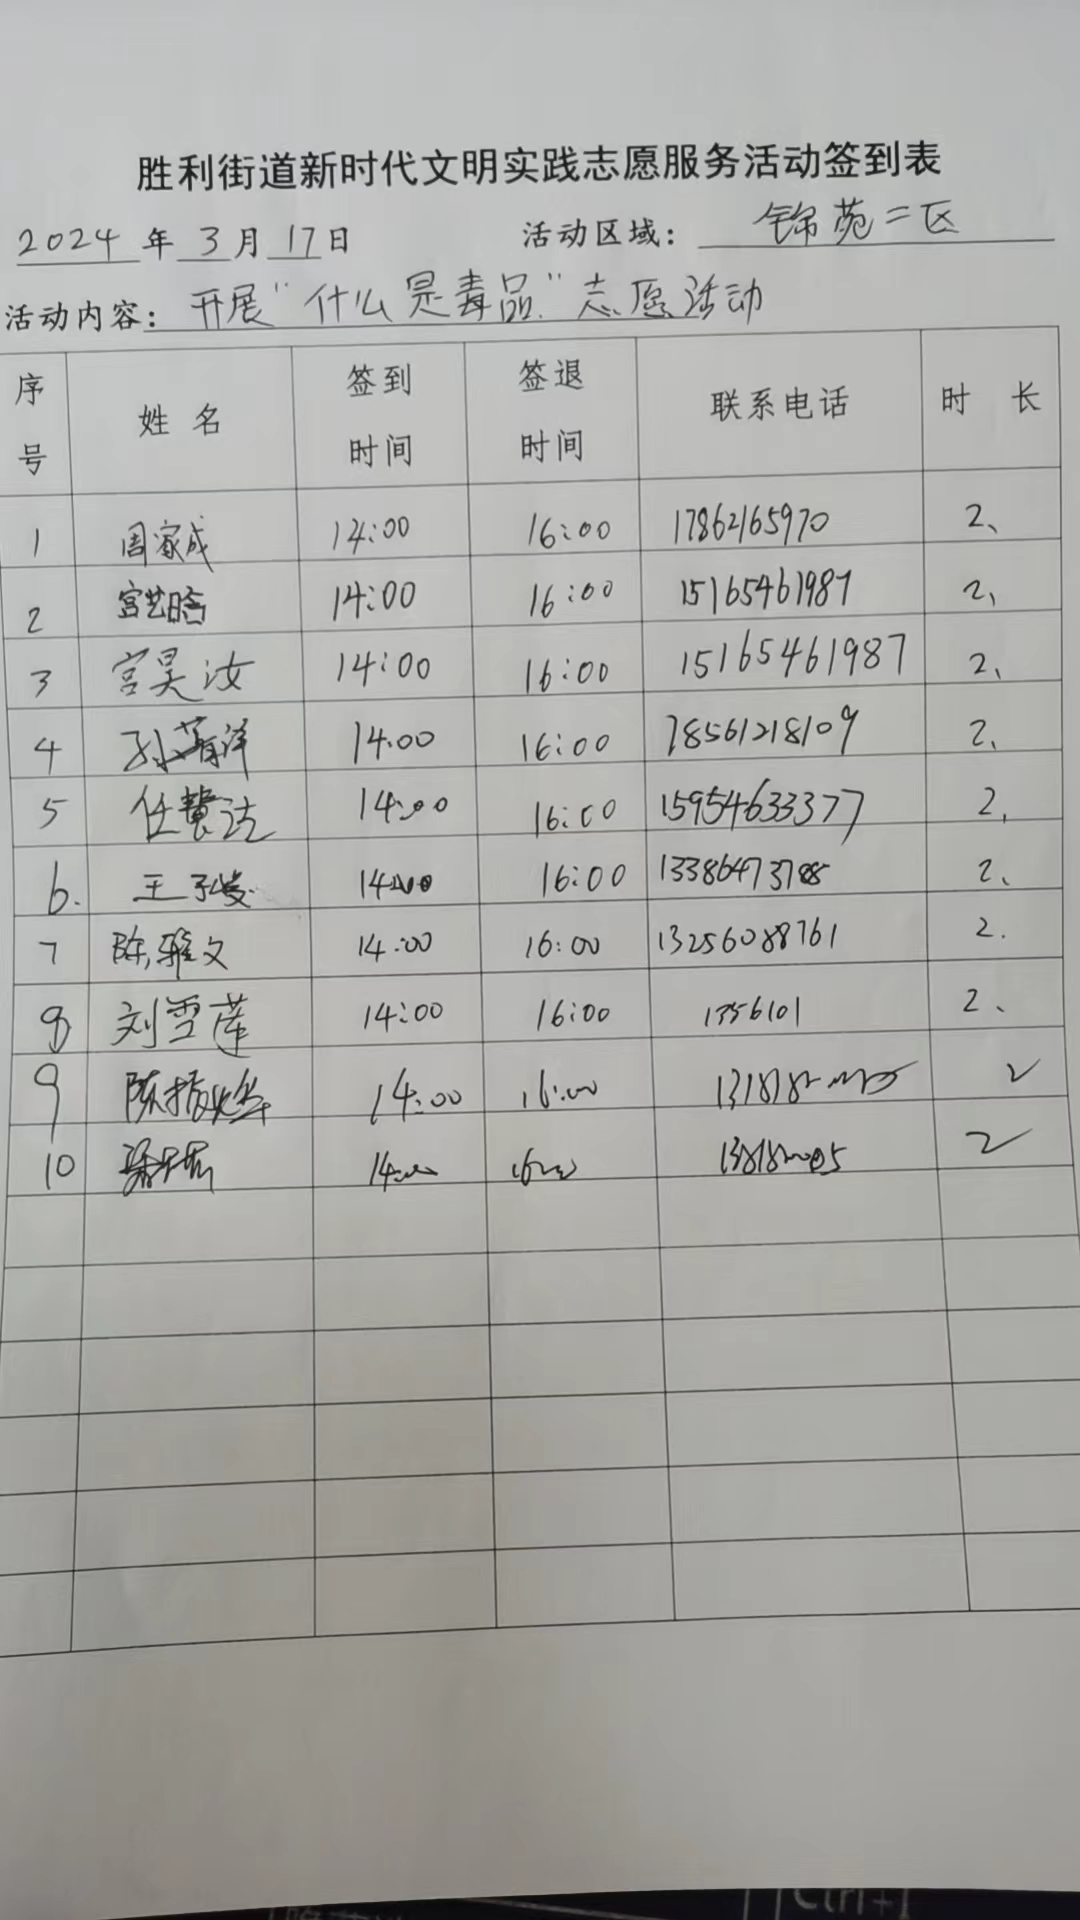 胜利街道新时代文明实践志愿服务活动签到表
2024 年 3 月 17 日 活动区域： 锦苑二区
活动内容： 开展“什么是毒品”志愿活动
序号 姓名 签到时间 签退时间 联系电话 时长
1 周家成 14:00 16:00 17862165970 2、
2 宫艺晗 14:00 16:00 15165461987 2、
3 宫昊汝 14:00 16:00 15165461987 2、
4 14:00 16:00 18561218109 2、
5 任慧洁 14:00 16:00 15954633377 2、
6. 14:00 16:00 13386473788 2、
7 陈雅文 14:00 16:00 13256088761 2.
8 刘雪莲 14:00 16:00 1356101 2、
9 14:00 16:00 2
10 14:00 16:00 2
Ctrl+